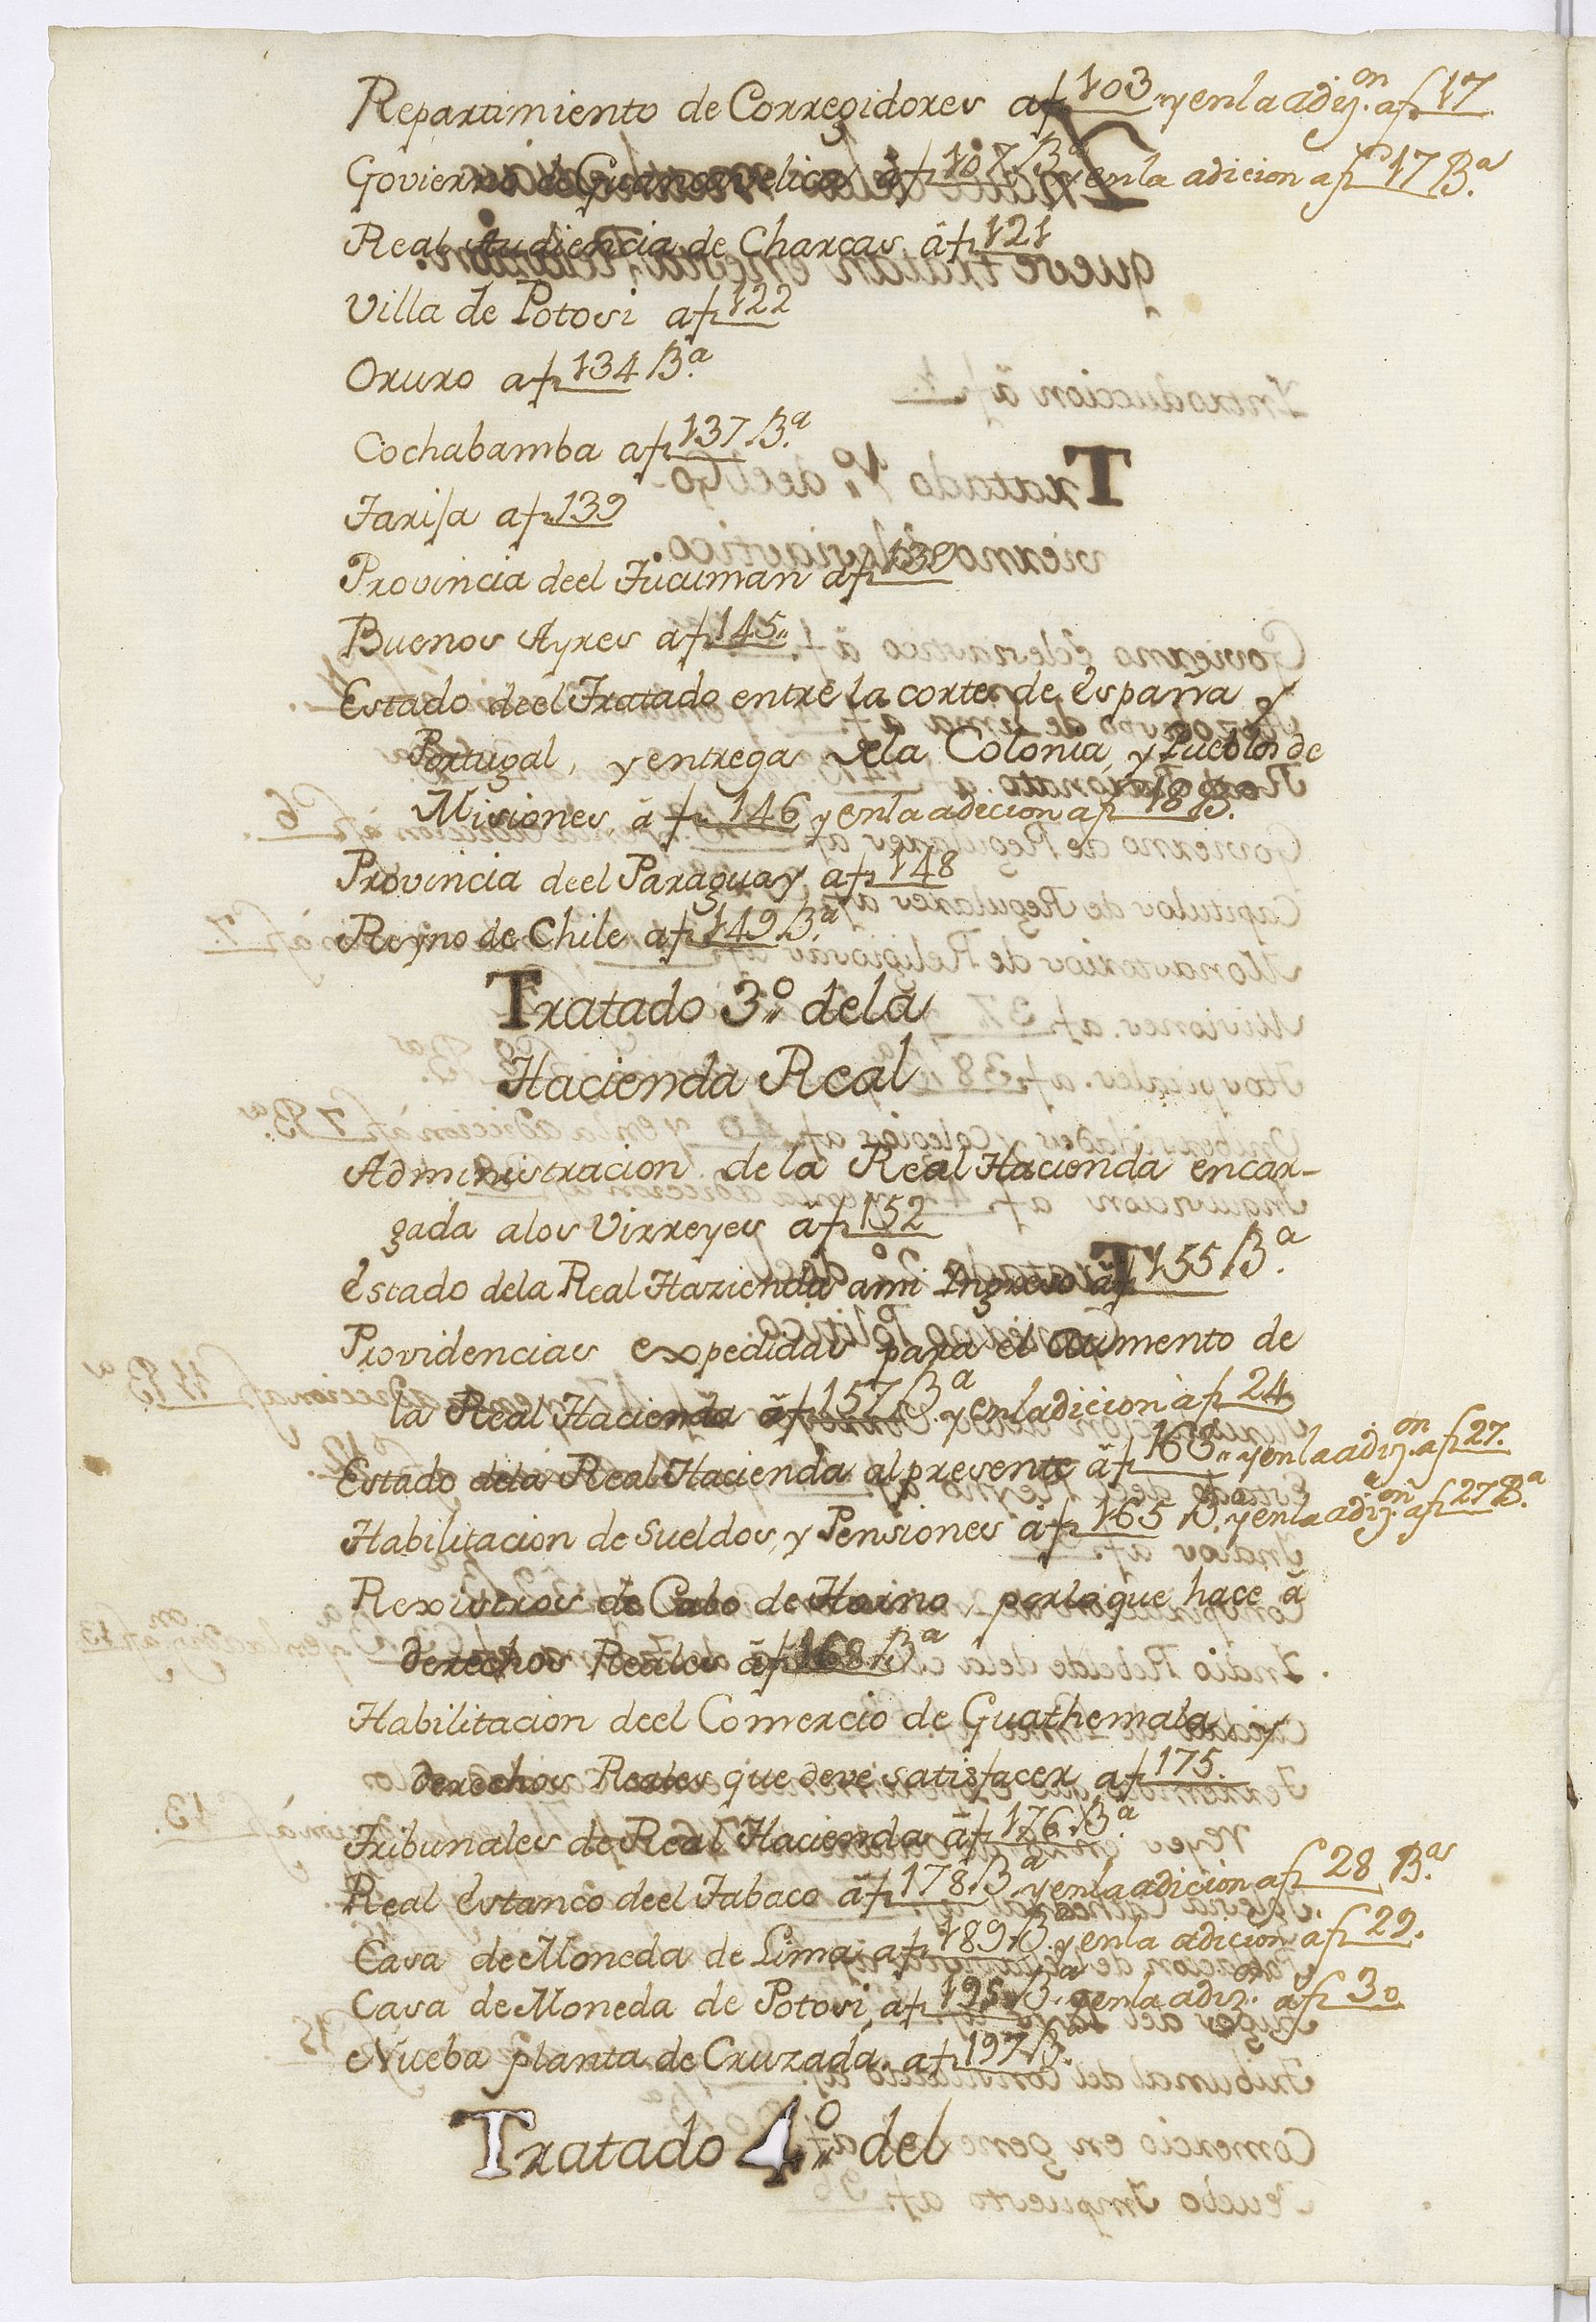 Repartimiento de Corregidores af 103 „ y en la adiz.on af 17
Govierno de Guancavelica âf 107 B.a y en la adicion af 17 B.a
Real Audiencia de Charcas âf 121
Villa de Potosi af 122
Oruro af 134 B.a
Cochabamba af 137 B.a
Tarija af 139
Provincia deel Tucuman af 139
Buenos Ayres af 145„
Estado deel Tratado entre la corte de España y
Portugal, y entrega dela Colonia, y Pueblos de
Misiones â f 146 y en la adicion af 18 B.
Provincia deel Paraguay af 148
Reyno de Chile af 149 B.a
Tratado 3.o dela
Hacienda Real
Administracion de la Real Hacienda encar-
gada alos Virreyes âf 152
Estado dela Real Hazienda a mi Ingreso âf 155 B.a
Providencias expedidas para el aumento de
la Real Hacienda âf 157 B.a y en ladicion âf 24
Estado dela Real Hacienda al presente âf 163 „ y en la adiz.on af 27.
Habilitacion de Sueldos, y Pensiones âf 165 B.a y en la adiz.on af 27 B.a
Rexistros de Cabo de Horno, por lo que hace â
derechos Reales âf 168 B.a
Habilitacion deel Comercio de Guathemala, y
derechos Reales que deve satisfacer af 175.
Tribunales de Real Hacienda âf 176 B.a
Real Estanco deel Tabaco âf 178 B.a y en la adicion af 28 B.as
Casa de Moneda de Lima af 189 B.a y en la adicion af 29.
Casa de Moneda de Potosi af 195 B.a y en la adiz.on âf 30
Nueba planta de Cruzada. af 197 B.a
Tratado 4.o del